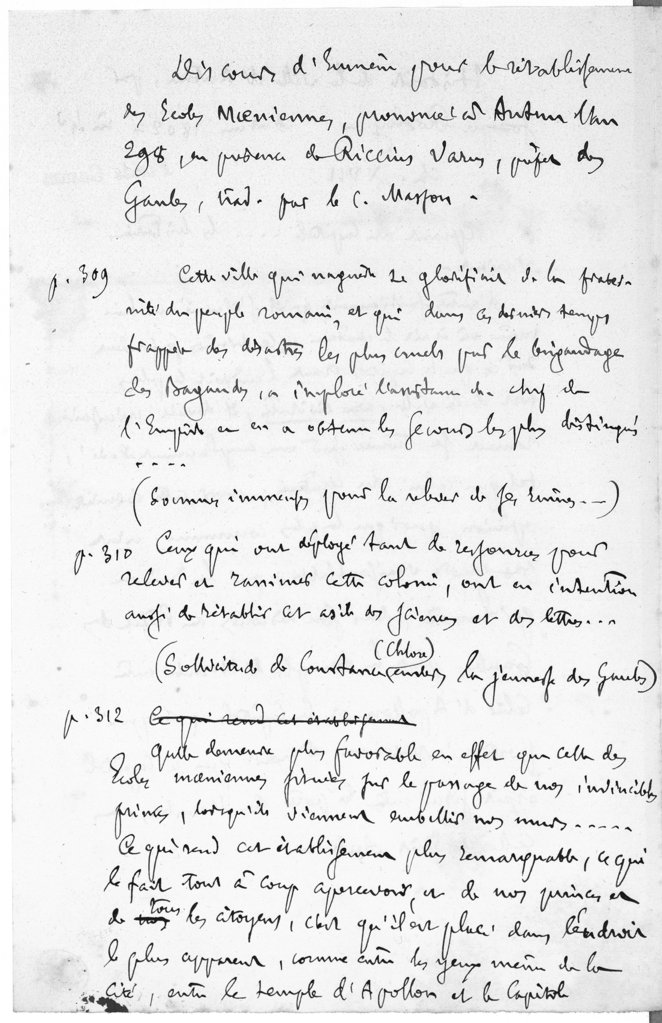 Discours d'Eumène pour le rétablissement
des Ecoles Mœniennes, prononcé à Autun l'an
298, en présence de Riccius Varus, préfet des
Gaules, trad. par le C. Masson.
p. 309 Cette ville qui naguère se glorifiait de la frater-
nité du peuple romain, et qui dans ces derniers temps
frappée des désastres les plus cruels par le brigandage
des Bagaudes, a imploré l'assistance du chef de
l'Empire en en a obtenu les secours les plus distingués
....
(Sommes immenses pour la relever de ses ruines...)
p. 310 Ceux qui ont déployé tant de ressources pour
relever et ranimer cette colonie, ont eu intention
aussi de rétablir cet asile des sciences et des lettres...
(Sollicitude de Constance (Chlore) envers la jeunesse des Gaules)
p. 312 Ce qui rend cet établissement
Quelle demeure plus favorable en effet que celle des
Ecoles mœniennes situées sur le passage de nos invincibles
princes, lorsqu'ils viennent embellir nos murs.....
Ce qui rend cet établissement plus remarquable, ce qui
le fait tout à coup apercevoir, et de nos princes et
de nos tous les citoyens, c'est qu'il est placé dans l'endroit
le plus apparent, comme entre les yeux même de la
cité, entre le temple d'Apollon et le Capitole